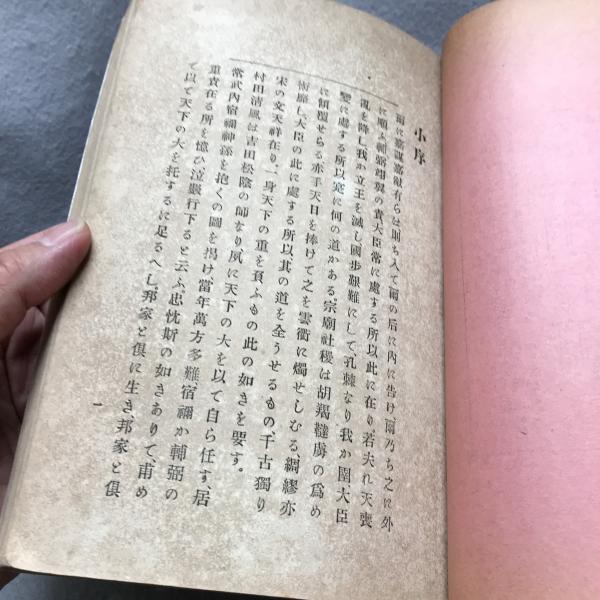 小序
爾に嘉謀嘉猷有らは則ち入て爾の后に内に告け爾乃ち之に外
に順ふ輔弼翊翼の責大臣常に處する所以此に在り若夫れ天喪
亂を降し我か立王を滅し國步艱難にして、孔棘なり我か圉大臣
變に處する所以寔に何の道かある宗廟社稷は胡羯韃虜の爲め
に顚覆せらる赤手天日を捧けて之を雲衢に燭せしむる、綢繆亦
術靡し、大臣の此に處する所以其の道を全うせるもの千古獨り
宋の文天祥在り、一身天下の重を負ふもの此の如きを要す。
村田清風は吉田松陰の師なり夙に天下の大を以て自ら任す、居
常武内宿禰神孫を抱くの圖を揭け當年萬方多難宿禰か輔弼の
重責在る所を憶ひ泣嚴行下ると云ふ、忠忱斯の如きありて甫め
て以て天下の大を托するに足るへし、邦家と俱に生き、邦家と俱
一